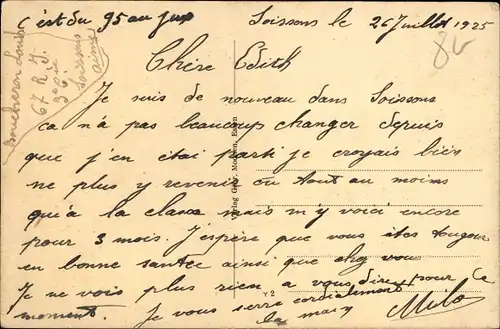 c'est du 95 au jus
Soissons le 26 Juillet 1925
Boucheron Louis
67 R. I.
Soissons
Aisne
Chère Edith
Je suis de nouveau dans Soissons
ca n'a pas beaucoup changer depuis
que j'en étai parti je croyais bien
ne plus y revenir ou tout au moins
qu'à la classe mais m'y voici encore
pour 3 mois. J'espère que vous êtes toujour
en bonne santée ainsi que chez vou
Je ne vois plus rien a vous dire pour ce
moment. Je vous serre cordialement
la main